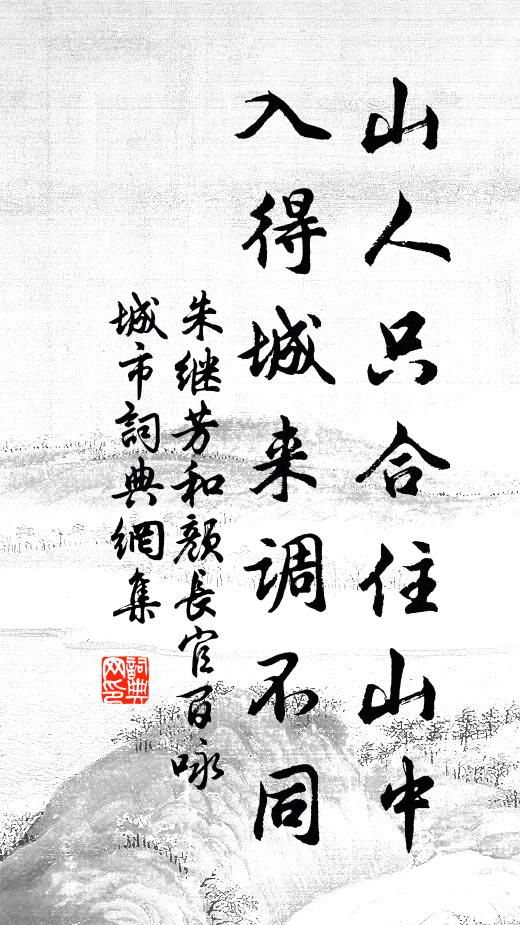 山人只合住山中
入得城来调不同
朱继芳和颜長官百咏
城市詞典網集
詞典网印